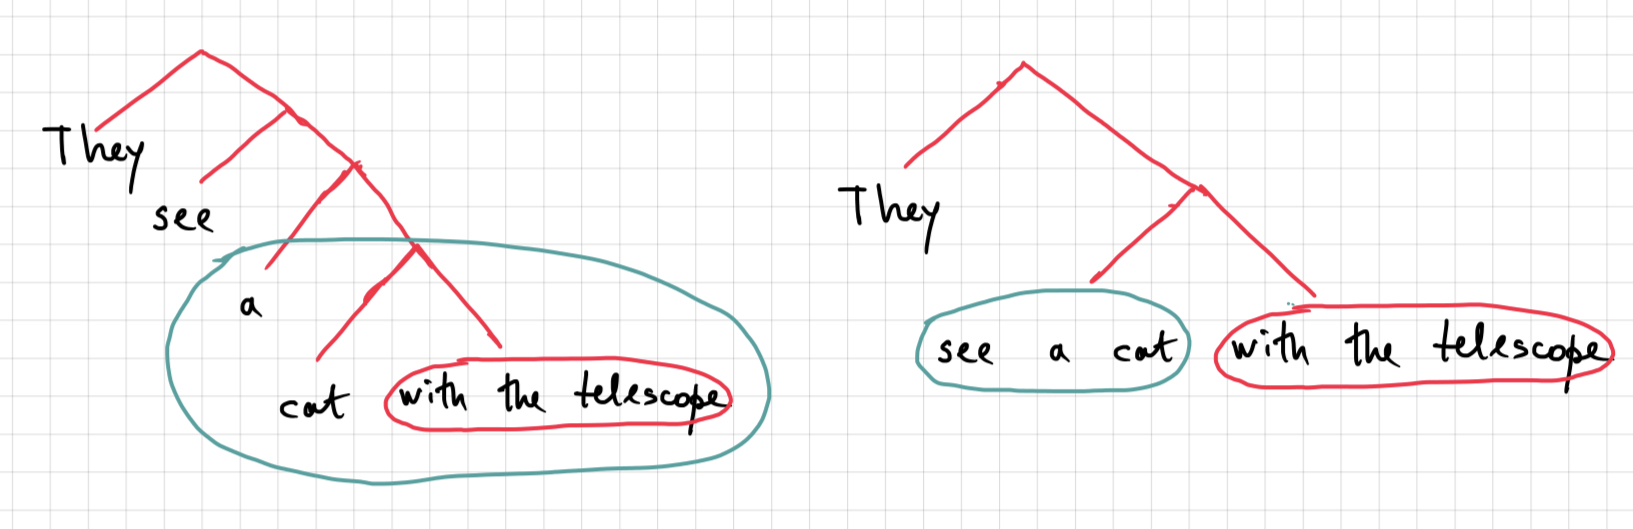 They
see
a
cat with the telescope
They
see a cat with the telescope